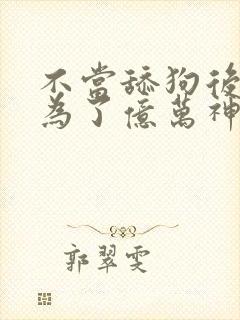 不當舔狗後
為了億萬神
郭翠雯